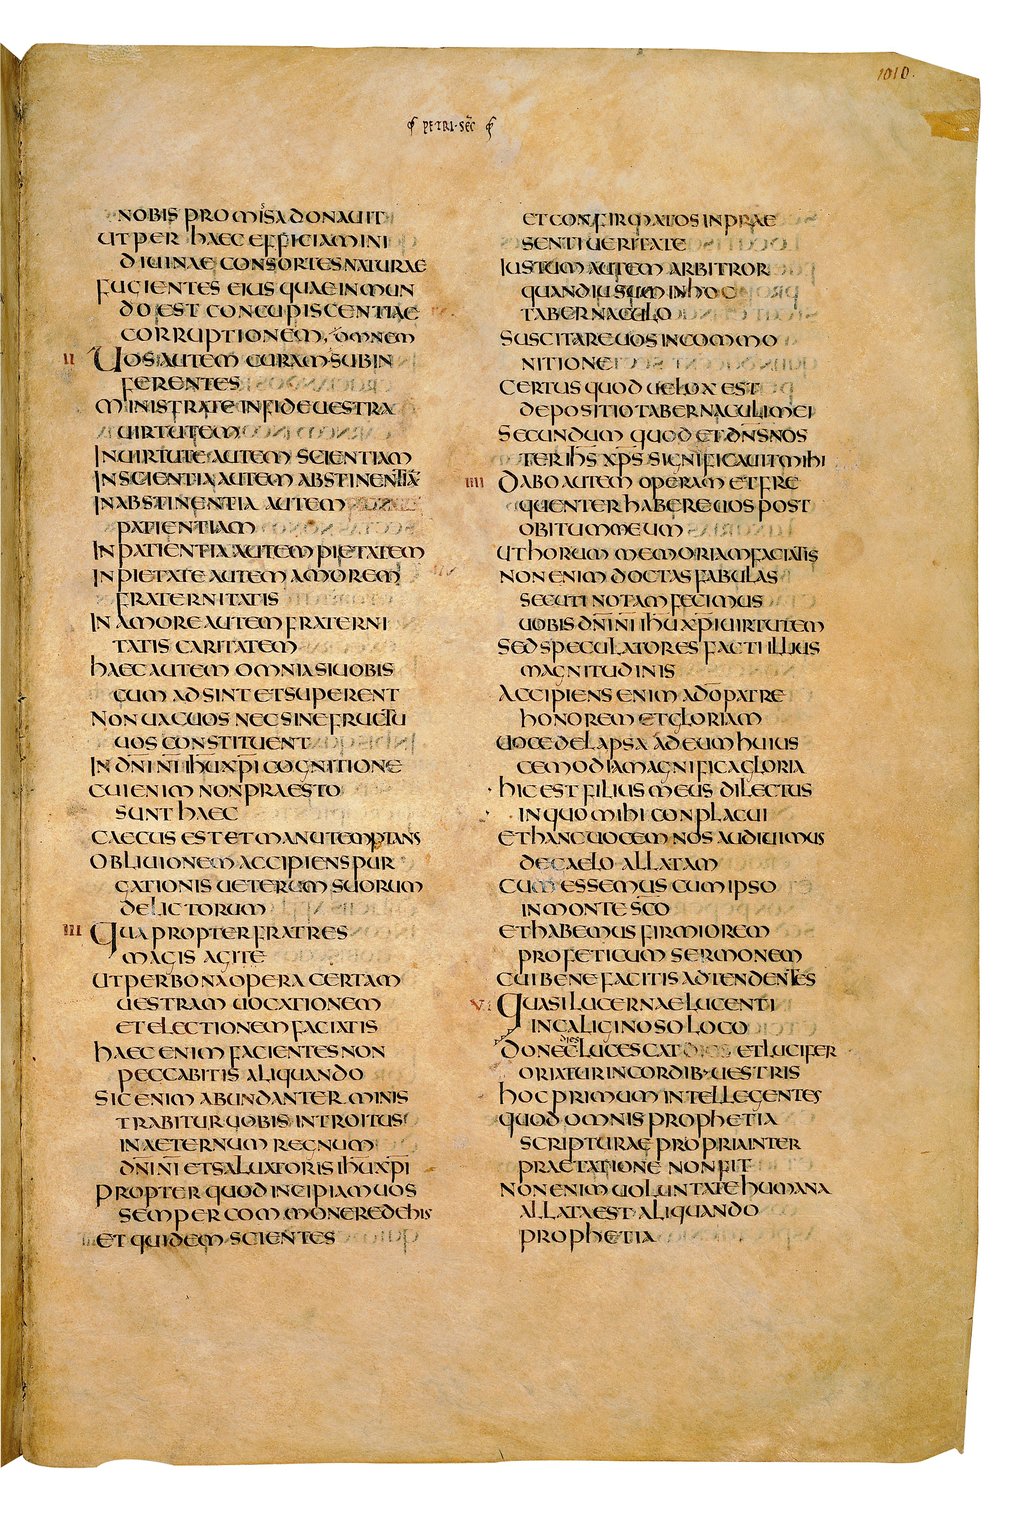 1010.
PETRI · SEC
NOBIS PROMISSA DONAUIT
UT PER HAEC EFFICIAMINI
DIUINAE CONSORTES NATURAE
FUCIENTES EIUS QUAE IN MUN
DO EST CONCUPISCENTIAE
CORRUPTIONEM, OMNEM
II UOS AUTEM CURAM SUBIN
FERENTES
MINISTRATE IN FIDE UESTRA
UIRTUTEM
IN UIRTUTE AUTEM SCIENTIAM
IN SCIENTIA AUTEM ABSTINENTIĀ
IN ABSTINENTIA AUTEM
PATIENTIAM
IN PATIENTIA AUTEM PIETATEM
IN PIETATE AUTEM AMOREM
FRATERNITATIS
IN AMORE AUTEM FRATERNI
TATIS CARITATEM
HAEC AUTEM OMNIA SI UOBIS
CUM ADSINT ET SUPERENT
NON UACUOS NEC SINE FRUCTU
UOS CONSTITUENT
IN DN̄I NI IHU XPI COGNITIONE
CUI ENIM NON PRAESTO
SUNT HAEC
CAECUS EST ET MANU TEMPTANS
OBLIUIONEM ACCIPIENS PUR
GATIONIS UETERUM SUORUM
DELICTORUM
III QUAPROPTER FRATRES
MAGIS AGITE
UT PER BONA OPERA CERTAM
UESTRAM UOCATIONEM
ET ELECTIONEM FACIATIS
HAEC ENIM FACIENTES NON
PECCABITIS ALIQUANDO
SIC ENIM ABUNDANTER MINIS
TRABITUR UOBIS INTROITUS
IN AETERNUM REGNUM
DN̄I NI ET SALUATORIS IHU XPI
PROPTER QUOD INCIPIAM UOS
SEMPER COMMONERE DE HIS
ET QUIDEM SCIENTES
ET CONFIRMATOS IN PRAE
SENTI UERITATE
IUSTUM AUTEM ARBITROR
QUANDIU SUM IN HOC
TABERNACULO
SUSCITARE UOS IN COMMO
NITIONE
CERTUS QUOD UELOX EST
DEPOSITIO TABERNACULI MEI
SECUNDUM QUOD ET DN̄S NOS
TER IHS XPS SIGNIFICAUIT MIHI
IIII DABO AUTEM OPERAM ET FRE
QUENTER HABERE UOS POST
OBITUM MEUM
UT HORUM MEMORIAM FACIATIS
NON ENIM DOCTAS FABULAS
SECUTI NOTAM FECIMUS
UOBIS DN̄I NI IHU XPI UIRTUTEM
SED SPECULATORES FACTI ILLIUS
MAGNITUDINIS
ACCIPIENS ENIM A DŌ PATRE
HONOREM ET GLORIAM
UOCE DELAPSA AD EUM HUIUS
CEMODI A MAGNIFICA GLORIA
HIC EST FILIUS MEUS DILECTUS
IN QUO MIHI CONPLACUI
ET HANC UOCEM NOS AUDIUIMUS
DE CAELO ALLATAM
CUM ESSEMUS CUM IPSO
IN MONTE SC̄O
ET HABEMUS FIRMIOREM
PROFETICUM SERMONEM
CUI BENE FACITIS ADTENDENTES
V QUASI LUCERNAE LUCENTI
IN CALIGINOSO LOCO
DONEC DIES LUCESCAT ET LUCIFER
ORIATUR IN CORDIB· UESTRIS
HOC PRIMUM INTELLEGENTES
QUOD OMNIS PROPHETIA
SCRIPTURAE PROPRIA INTER
PRAETATIONE NON FIT
NON ENIM UOLUNTATE HUMANA
ALLATA EST ALIQUANDO
PROPHETIA